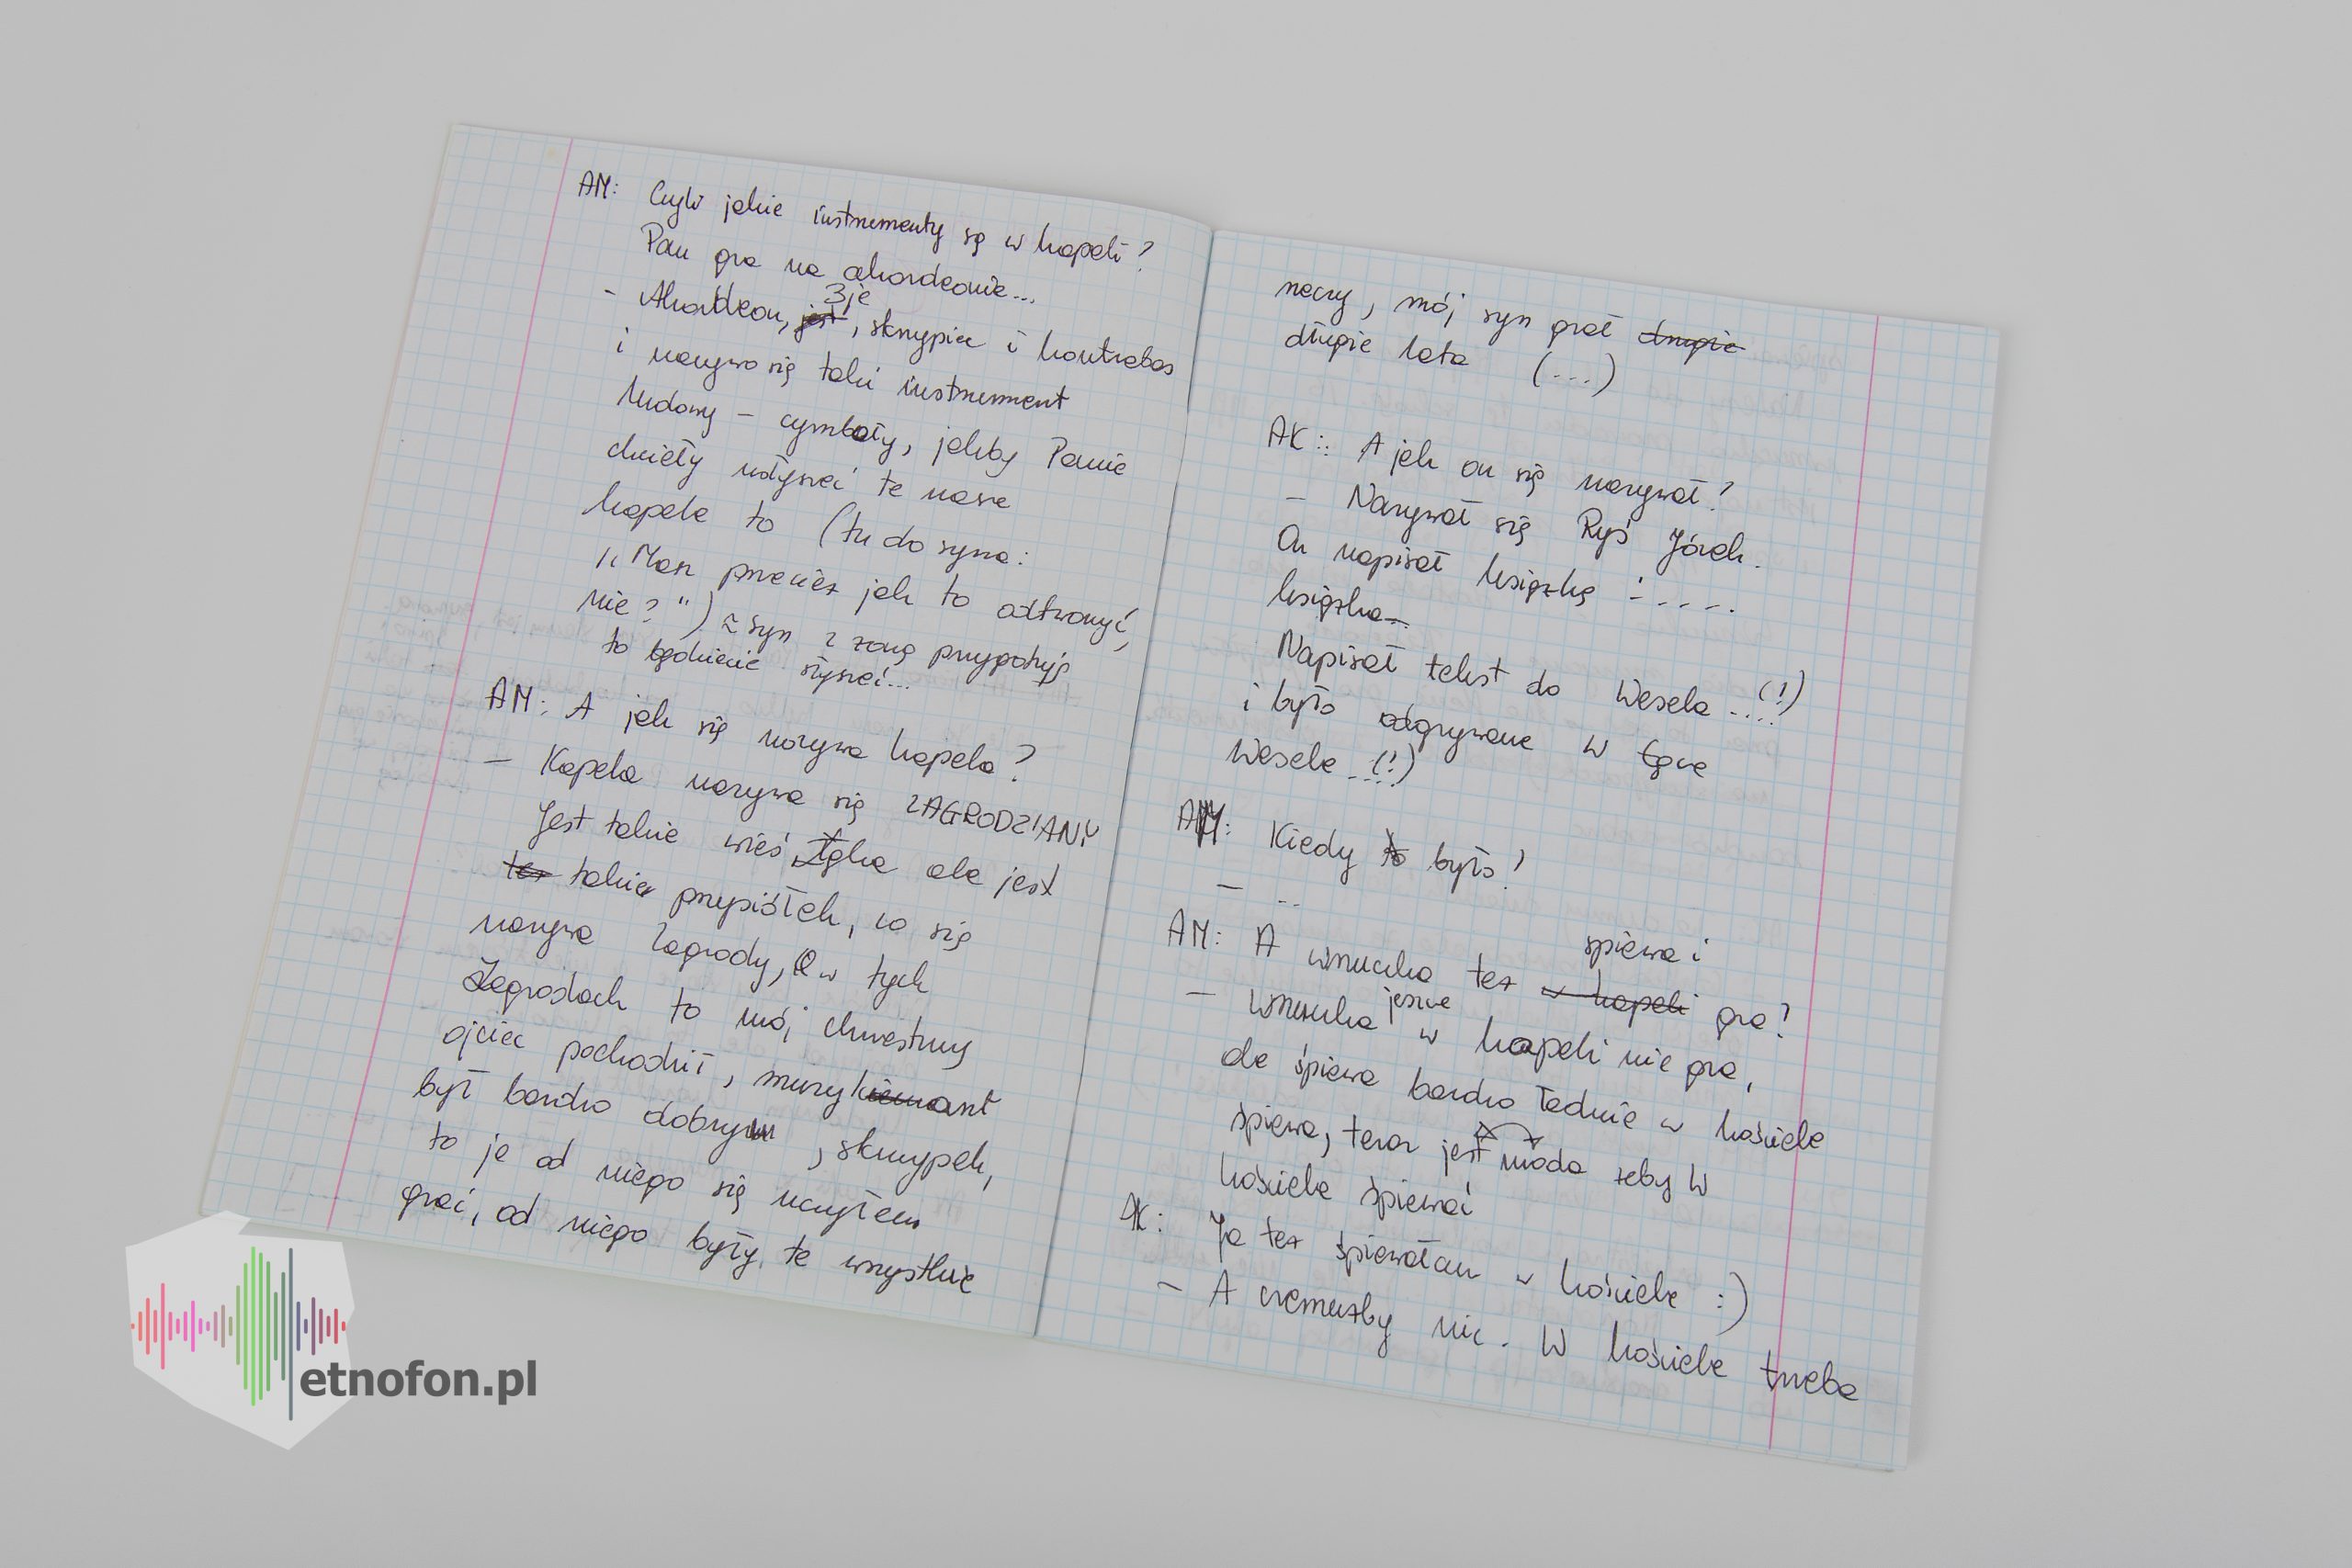 AM: Czyli jakie instrumenty są w kapeli?
Pan gra na akordeonie...
- Akordeon, jest 3je, skrzypiec i kontrabas
i nazywa się taki instrument
ludowy - cymbały, jakby Panie
chciały usłyszeć te nasze
kapele to (tu do syna:
"Masz przecież jak to odtworzyć,
nie?") syn z żoną przygotują
to będziecie słyszeć...
AM: A jak się nazywa kapela?
- Kapela nazywa się ZAGRODZIANY
Jest takie wieś, Łąka ale jest
też takie przysiółek, co się
nazywa Zagrody, w tych
Zagrodach to mój chrzestny
ojciec pochodził, muzykant
był bardzo dobrym, skrzypek,
to ja od niego się uczyłem
grać, od niego były te wszystkie
rzeczy, mój syn grał długie
długie lata (...)
AK: A jak on się nazywał?
- Nazywał się Ryś Józek.
On napisał książkę : - - - -.
książka
Napisał tekst do Wesela ....(!)
i było odgrywane w Łące
Wesele ....(!)
AM: Kiedy to było?
- ..
AM: A wnuczka też w kapeli śpiewa i gra?
- Wnuczka jeszcze w kapeli nie gra,
ale śpiewa bardzo ładnie w kościele
śpiewa, teraz jest moda żeby w
kościele śpiewać
AK: Ja też śpiewałam w kościele :)
- A czemużby nie. W kościele trzeba
etnofon.pl